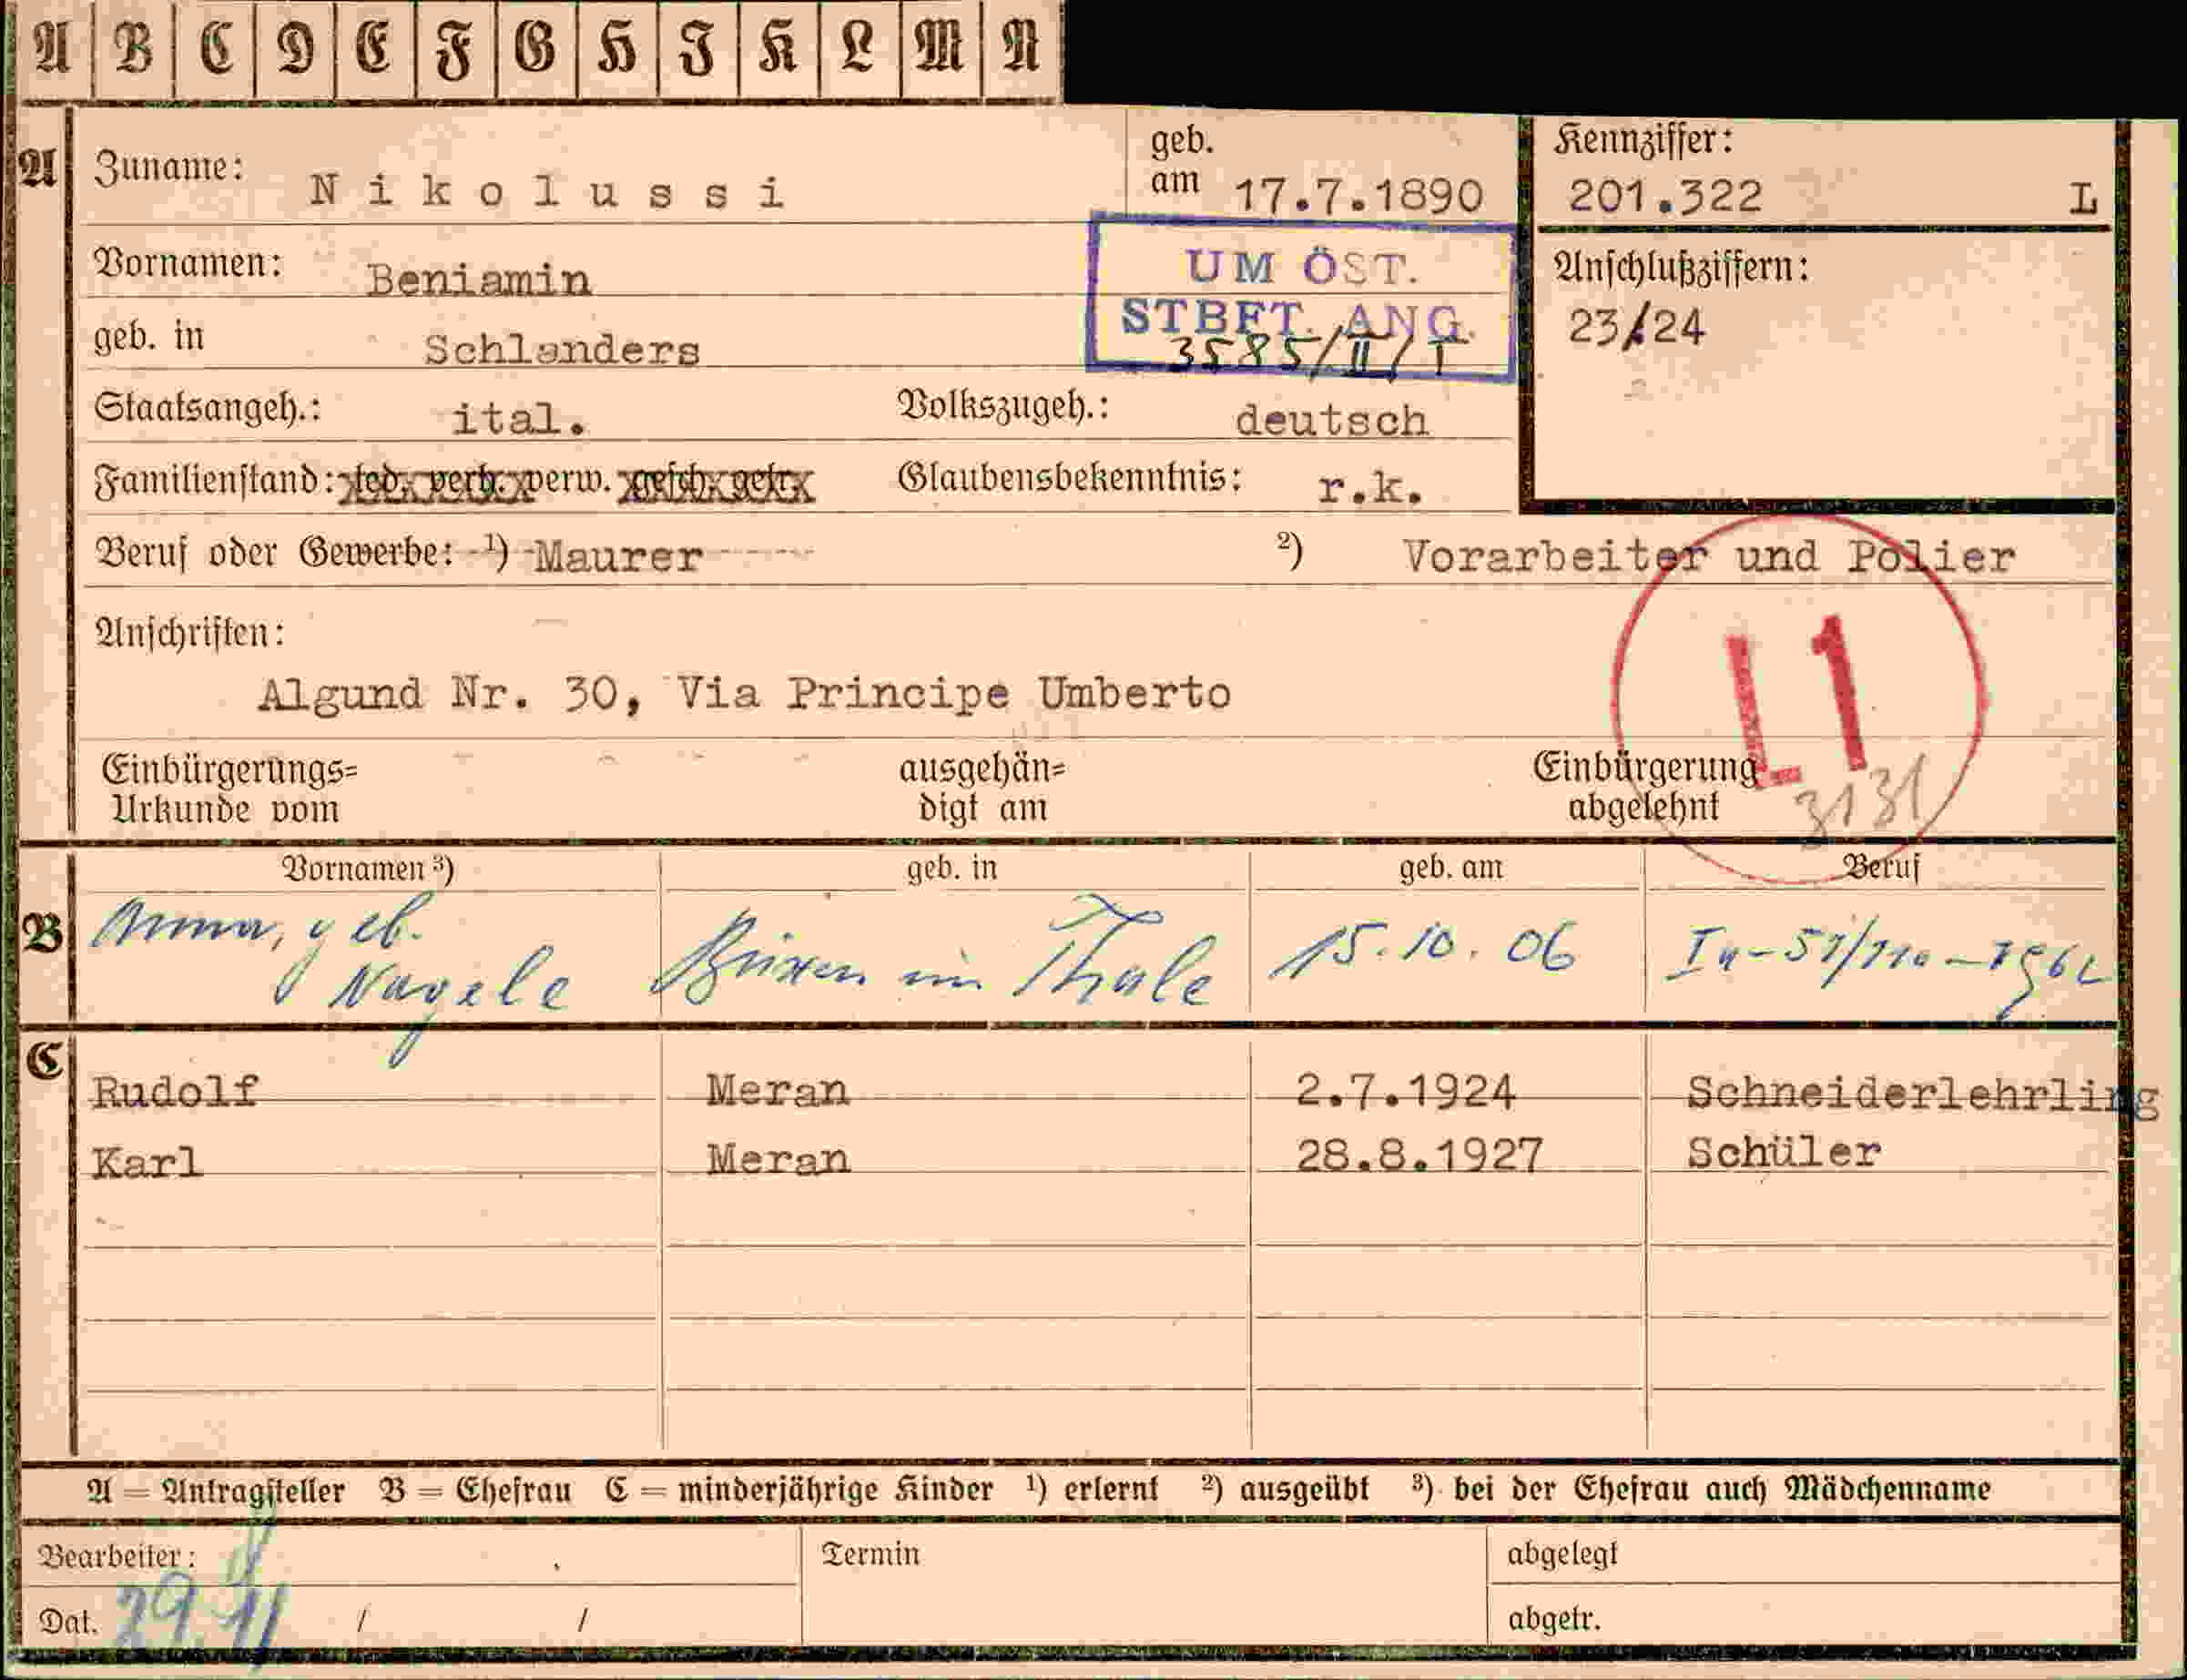 A B C D E F G H I K L M N
A
Zuname: Nikolussi
geb. am 17.7.1890
Kennziffer:
201.322 L
Vornamen: Beniamin
UM ÖST.
STBFT. ANG.
3585/II/T
Anschlußziffern:
23/24
geb. in Schlanders
Staatsangeh.: ital. Volkszugeh.: deutsch
Familienstand: led. verh. verw. gesch. getr. Glaubensbekenntnis: r.k.
Beruf oder Gewerbe: ¹) Maurer ²) Vorarbeiter und Polier
Anschriften:
Algund Nr. 30, Via Principe Umberto
L1
3131
Einbürgerungs=
Urkunde vom
ausgehän=
digt am
Einbürgerung
abgelehnt
Vornamen ³) geb. in geb. am Beruf
B
Anna, geb.
Nagele
Brixen im Thale 15.10.06
C
Rudolf Meran 2.7.1924 Schneiderlehrling
Karl Meran 28.8.1927 Schüler
A = Antragsteller B = Ehefrau C = minderjährige Kinder ¹) erlernt ²) ausgeübt ³) bei der Ehefrau auch Mädchenname
Bearbeiter: Termin abgelegt
Dat. 29.11 / / abgetr.